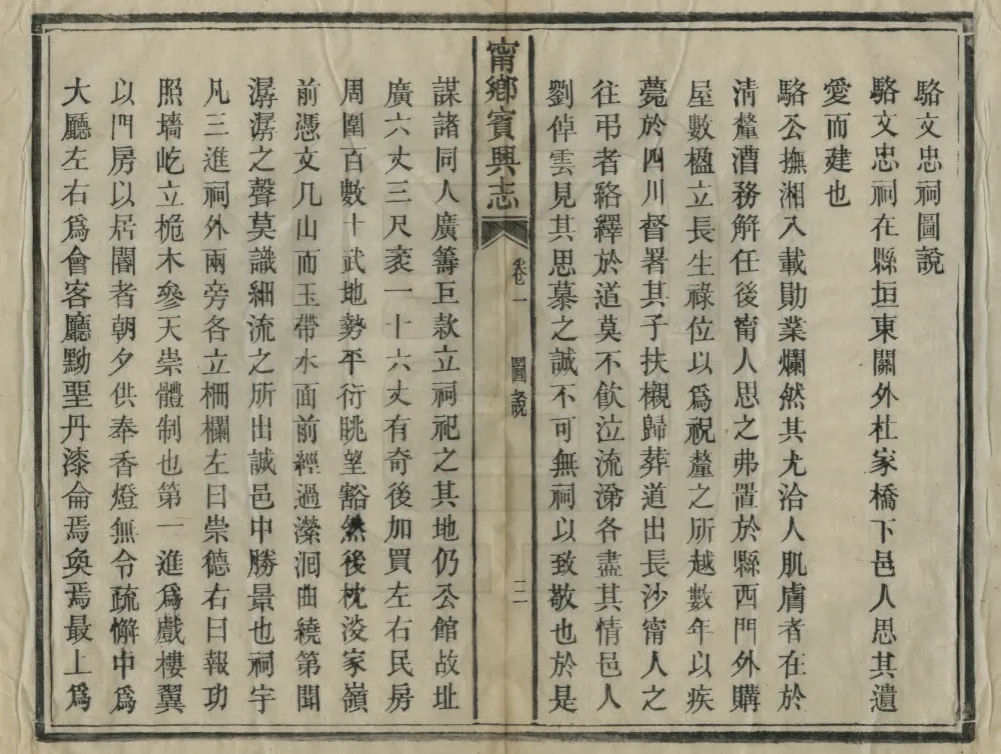 駱文忠祠圖說
駱文忠祠在縣垣東關外杜家橋下邑人思其遺
愛而建也
駱公撫湘入載勛業爛然其尤洽人肌膚者在於
清釐漕務解任後甯人思之弗置於縣西門外購
屋數楹立長生祿位以為祝釐之所越數年以疾
薨於四川督署其子扶櫬歸葬道出長沙甯人之
往弔者絡繹於道莫不飲泣流涕各盡其情邑人
劉倬雲見其思慕之誠不可無祠以致敬也於是
甯鄉賓興志
卷一
圖說
二
謀諸同人廣籌巨款立祠祀之其地仍公館故址
廣六丈三尺袤一十六丈有奇後加買左右民房
周圍百數十武地勢平衍眺望豁然後枕淡家嶺
前憑文几山而玉帶水面前經過瀠洄曲繞第聞
潺潺之聲莫識細流之所出誠邑中勝景也祠宇
凡三進祠外兩旁各立柵欄左曰崇德右曰報功
照墻屹立桅木參天崇體制也第一進爲戲樓翼
以門房以居閽者朝夕供奉香燈無令疏懈中爲
大廳左右爲會客廳黝堊丹漆侖焉奐焉最上爲